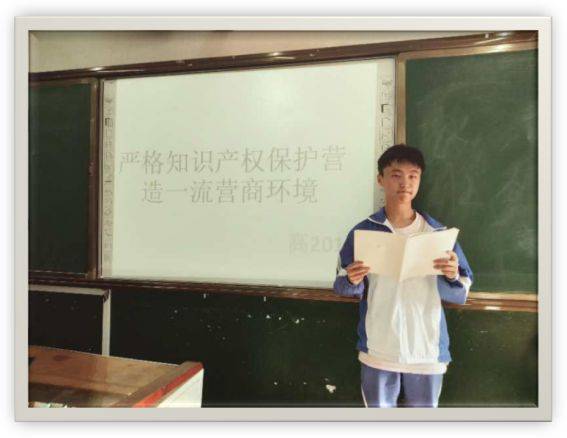 严格知识产权保护营
造一流营商环境
高201